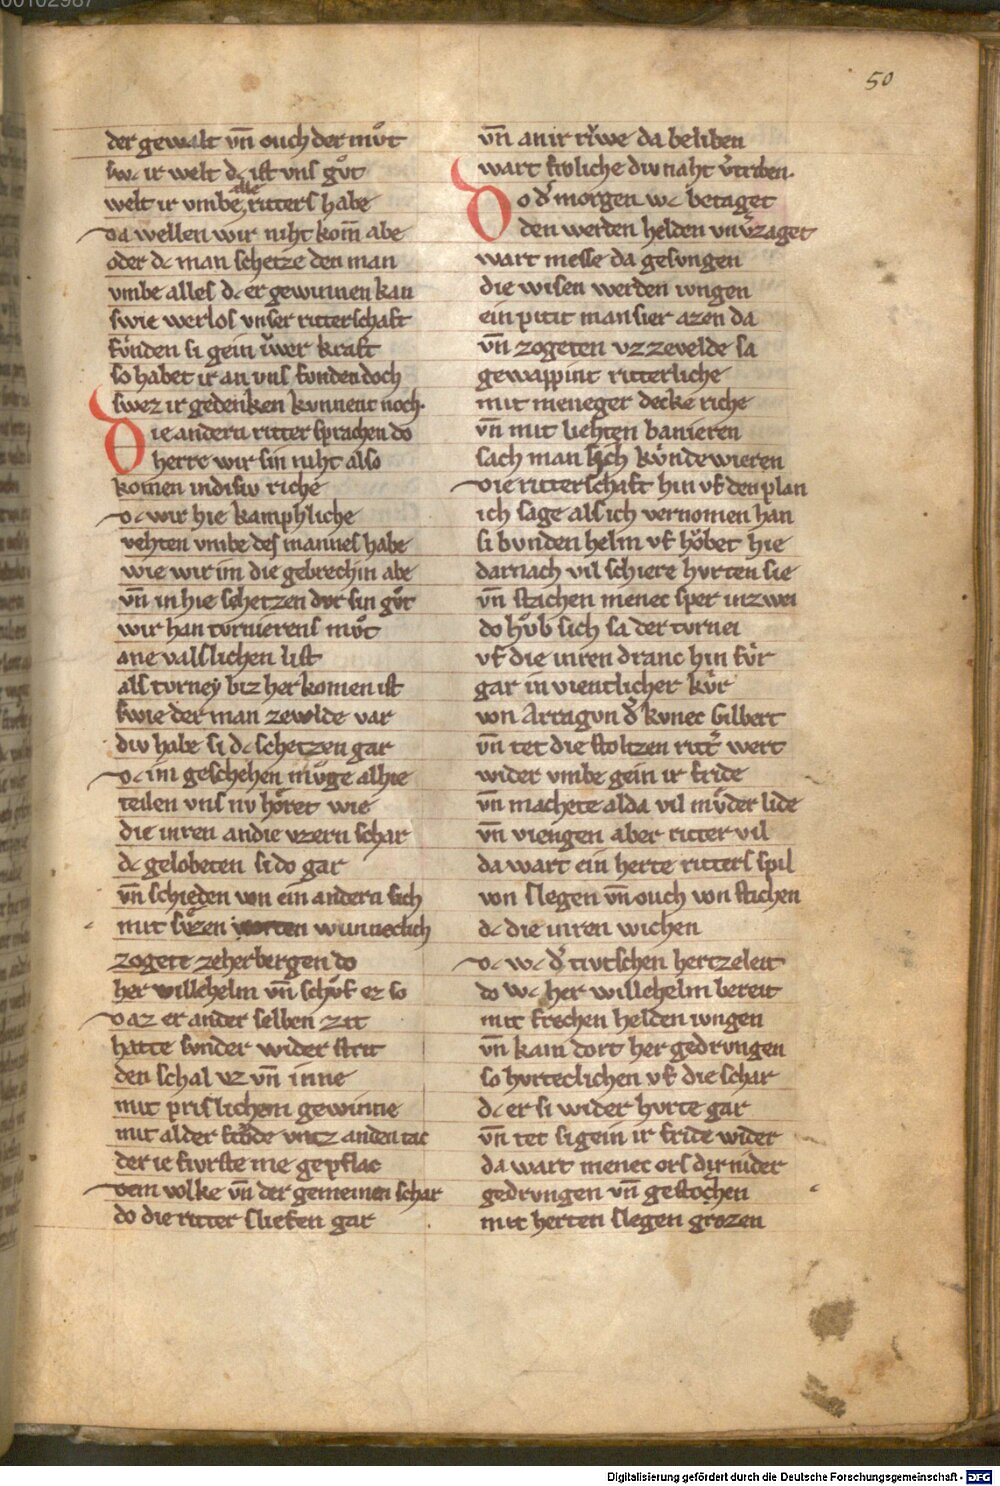 00102987
50
der gewalt vn̄ ouch der mv̊t
sw c ir welt d c ist vns gv̊t
welt ir vmbe alle ritters habe
da wellen wir niht kom̄ abe
oder d c man schetze den man
vmbe alles d c er gewinnen kan
swie werlos vnser ritterschaft
fv̊nden si gein iv̊wer kraft
so habet ir an vns funden doch
swez ir gedenken kunnent noch.
Die andern ritter sprachen do
herre wir sin niht also
komen in disiv riche
d c wir hie kamphliche
vehten vmbe des mannes habe
wie wir im die gebrechin abe
vn̄ in hie schetzen dvr sin gv̊t
wir han tvrnierens mv̊t
ane valslichen list
als tvrney biz her komen ist
swie der man zevelde var
div habe si d c schetzen gar
d c im geschehen mv̊ge alhie
teilen vns nv hȯret wie
die inren an die vzern schar
d c gelobeten si do gar
vn̄ schieden von ein andern sich
mit sv̊zen worten wunneclich
zogete zeherbergen do
her willehelm vn̄ schv̊f ez so
daz er ander selben zit
hatte sunder wider strit
den schal vz vn̄ inne
mit prislichem gewinne
mit alder frȯde vntz an den tac
der ie fivrste me gepflac
dem volke vn̄ der gemeinen schar
do die ritter sliefen gar
vn̄ an ir rv̊we da beliben
wart froliche div naht v̓triben.
Do d̓ morgen w c betaget
den werden helden vnv̓zaget
wart messe da gesvngen
die wisen werden ivngen
ein pitit mansier azen da
vn̄ zogeten vz zevelde sa
gewappint ritterliche
mit meneger decke riche
vn̄ mit liehten banieren
sach man sich kv̊nde wieren
die ritterschaft hin vf den plan
ich sage als ich vernomen han
si bvnden helm vf hȯbet hie
darnach vil schiere hvrten sie
vn̄ stachen menec sper inzwei
do hv̊b sich sa der tvrnei
vf die inren dranc hin fv̊r
gar in vientlicher kv̊r
von Arragvn d̓ kvnec Gilbert
vn̄ tet die stoltzen ritt̓ wert
wider vmbe gein ir fride
vn̄ machete alda vil mv̊der lide
vn̄ viengen aber ritter vil
da wart ein herte ritters spil
von slegen vn̄ ouch von stichen
d c die inren wichen
d c w c d̓ tivtschen hertzeleit
do w c her willehelm bereit
mit frechen helden ivngen
vn̄ kam dort her gedrvngen
so hvrteclichen vf die schar
d c er si wider hvrte gar
vn̄ tet si gein ir fride wider
da wart menec ors dir nider
gedrvngen vn̄ gestochen
mit herten slegen grozen
Digitalisierung gefördert durch die Deutsche Forschungsgemeinschaft - DFG